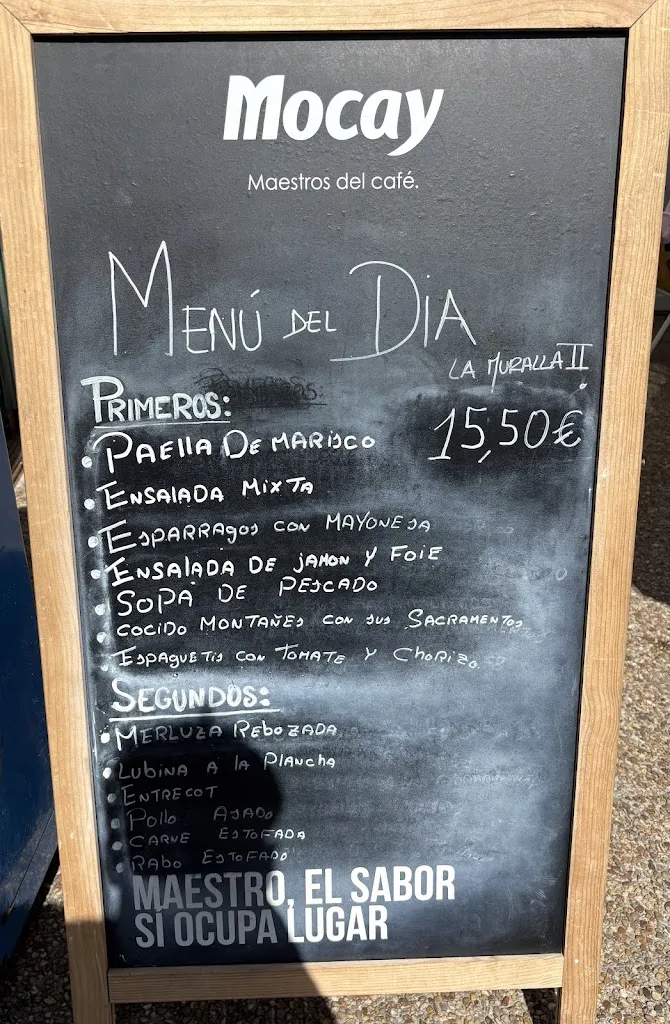 Mocay
Maestros del café.
MENÚ DEL DIA
LA MURALLA II
PRIMEROS:
15,50€
• PAEllA DE MARISCO
• ENSALADA MIXTA
• ESPARRAgos CON MAYONESA
• ENSALADA DE JAMON Y FOIE
• SOPA DE PESCADO
• COCIDO MONTAÑES CON SUS SACRAMENTOS
• ESPAGUETIS CON TOMATE Y CHORIZO
SEGUNDOS:
• MERLUZA REBOZADA
• LUBINA A la PlANCHA
• ENTRECOT
• POllO ASADO
• CARNE ESTOFADA
• RABO ESTOFADO
MAESTRO, EL SABOR
SÍ OCUPA LUGAR